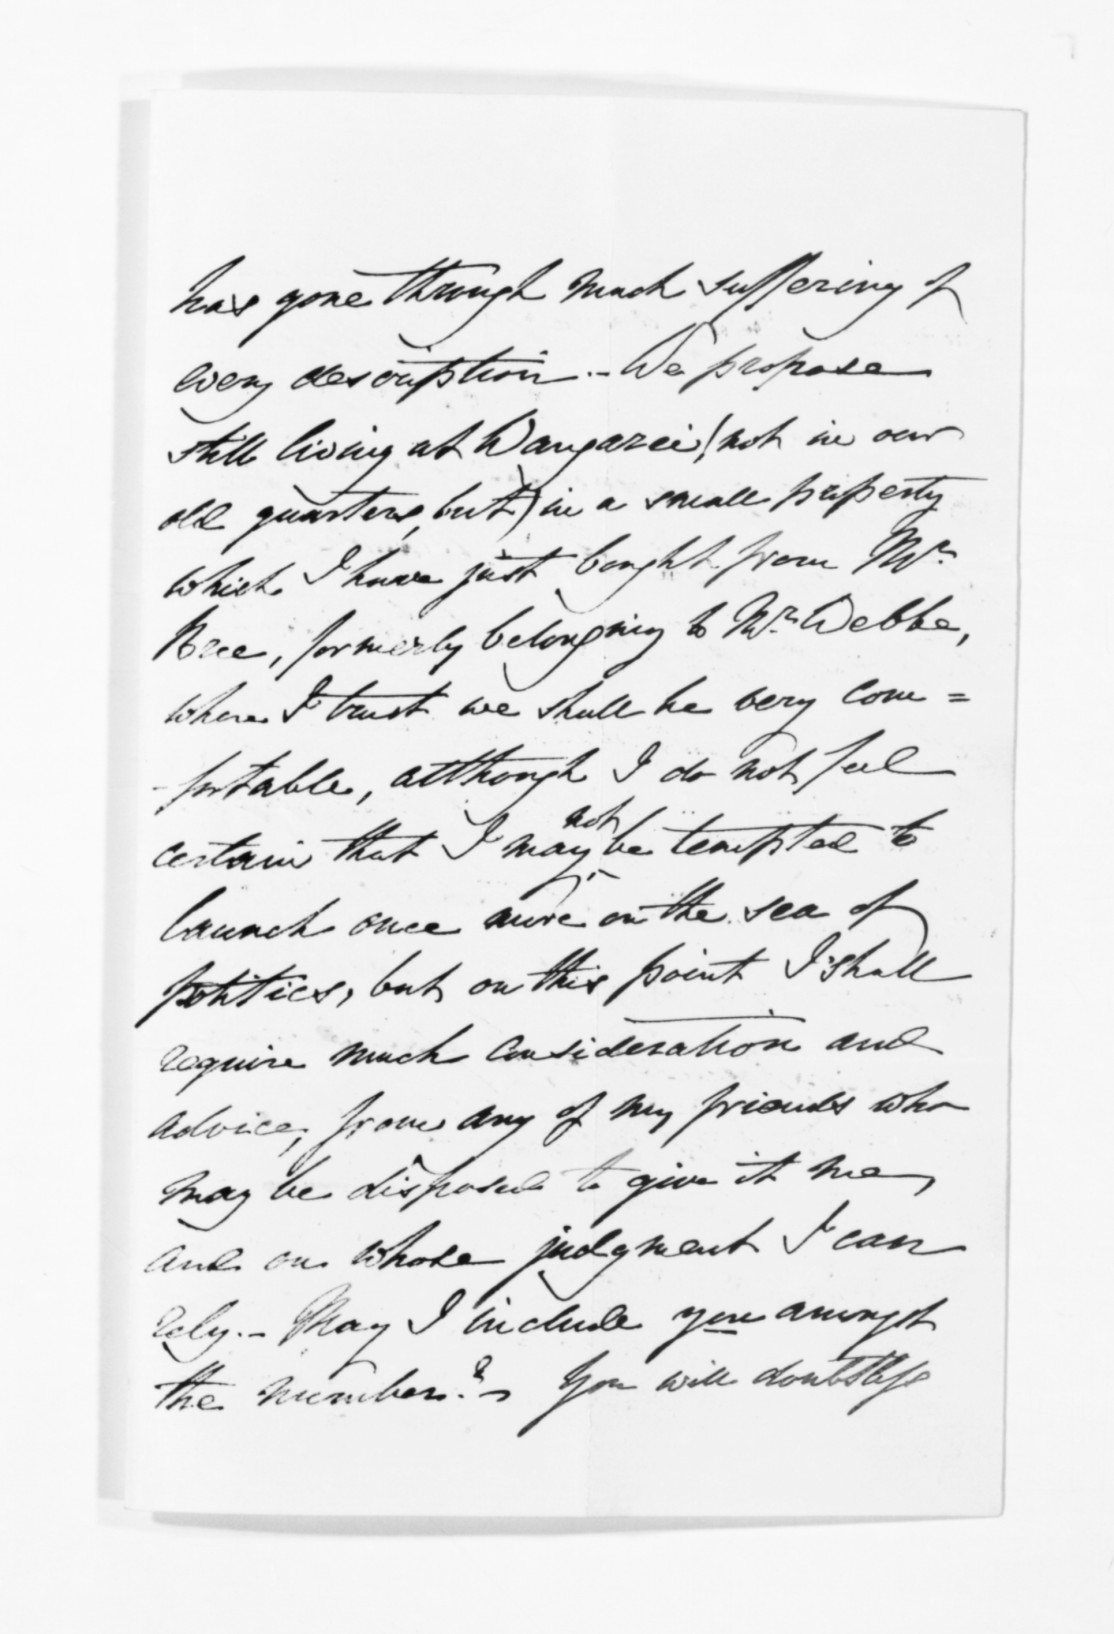 has gone through much suffering of
every description. – We propose
still living at Wangarei (not in our
old quarters, but) in a small property
which I have just bought from Mr.
Bree, formerly belonging to Mr. Webbe,
where I trust we shall be very com=
-fortable, although I do not feel
certain that I may not be tempted to
launch once more on the sea of
politics, but on this point I shall
require much consideration and
advice, from any of my friends who
may be disposed to give it me,
and on whose judgment I can
rely. – May I include you amongst
the number? – You will doubtless